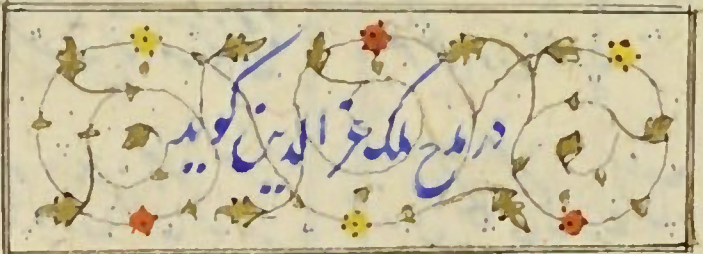 در مدح ملک عز الدین کوید